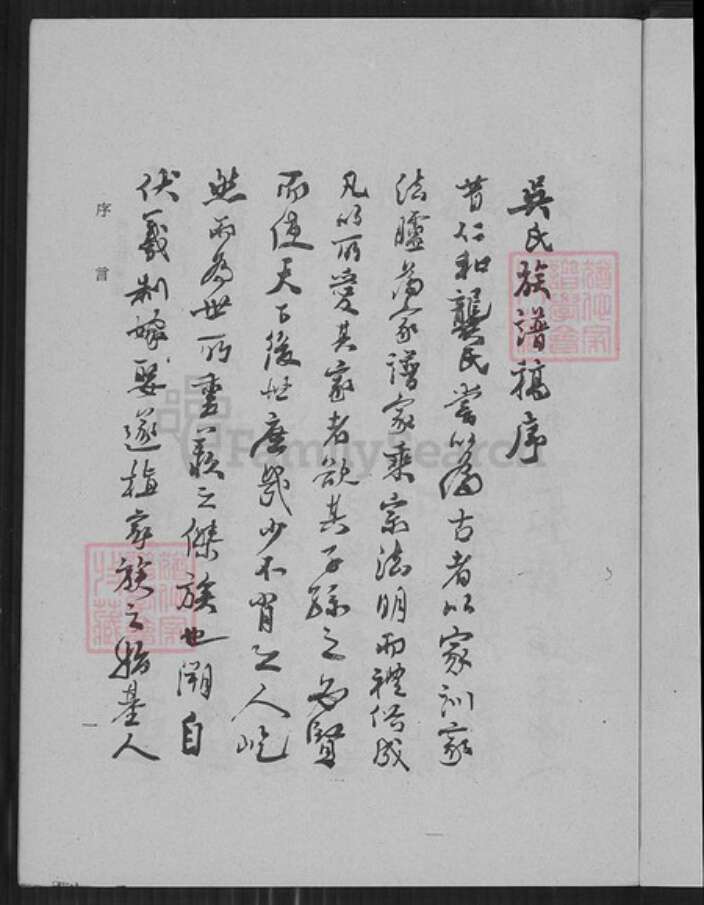 吳氏族譜稿序
昔仁和龔氏嘗以為古者以家訓家
法臚為家譜家乘宗法明而禮俗成
凡以所愛其家者欲其子孫之必賢
而使天下後世庶幾少不肖之人屹
然而為世所重义之傑族也溯自
伏羲制嫁娶遂植家族之始基人
序言
一
FamilySearch